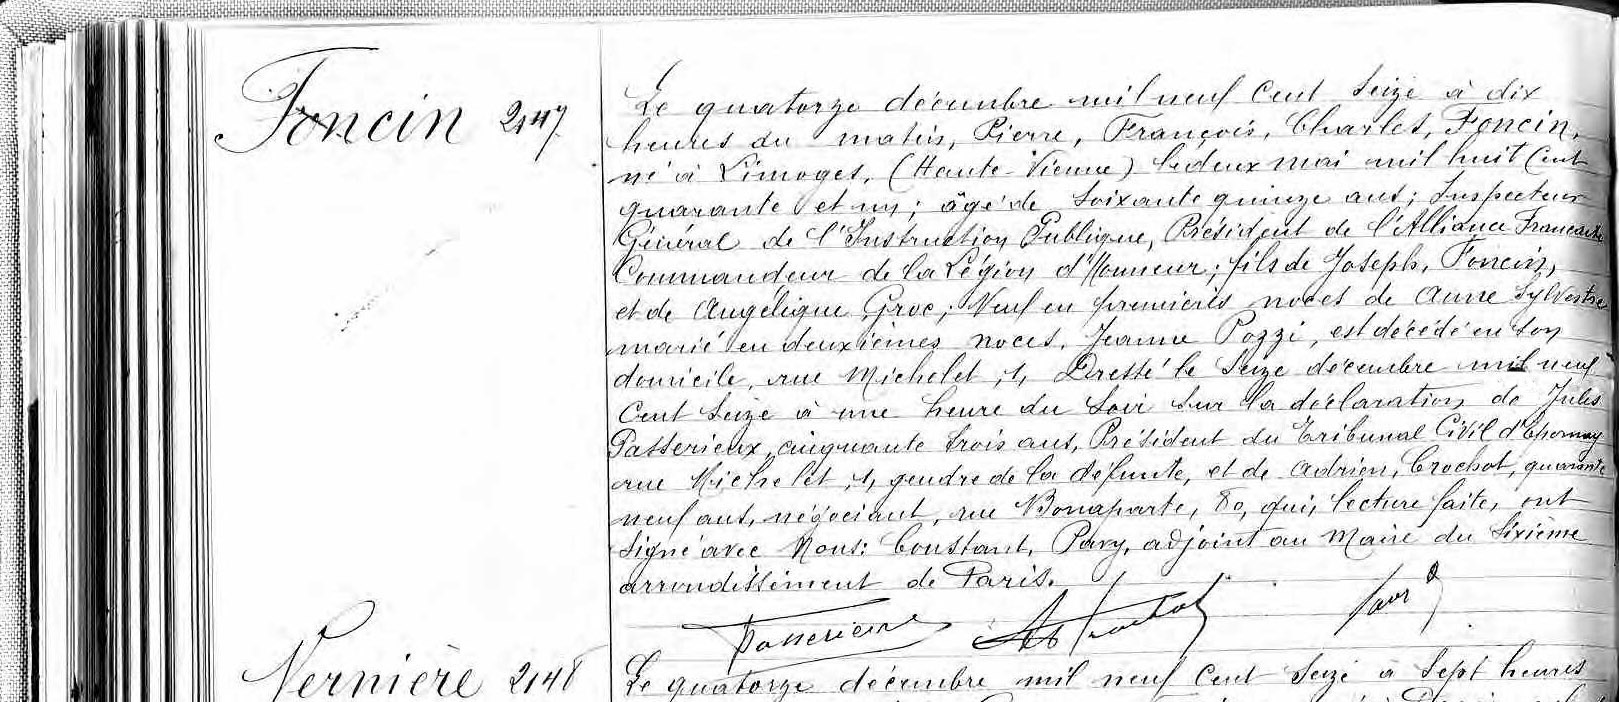 Foncin 2147
Le quatorze décembre mil neuf cent seize à dix
heures du matin, Pierre, François, Charles, Foncin,
né à Limoges, (Haute-Vienne) le deux mai mil huit cent
quarante et un ; âgé de soixante quinze ans ; Inspecteur
Général de l'Instruction Publique, Président de l'Alliance Française
Commandeur de la Légion d'Honneur ; fils de Joseph, Foncin,
et de Angélique Groc ; Veuf en premières noces de Anne Sylvestre
marié en deuxièmes noces, Jeanne Pozzi, est décédé en son
domicile, rue Michelet, 1, Dressé le seize décembre mil neuf
cent seize à une heure du soir sur la déclaration de Jules
Passerieux, cinquante trois ans, Président du Tribunal Civil d'Epernay
rue Michelet, 1, gendre de la defunte, et de Adrien, Crochot, quarante
neuf ans, négociant, rue Bonaparte, 80, qui, lecture faite, ont
signé avec Nous : Constant, Pavy, adjoint au Maire du Sixième
arrondissement de Paris.
Passerieux
Vernière 2148
Le quatorze décembre mil neuf cent seize à sept heures